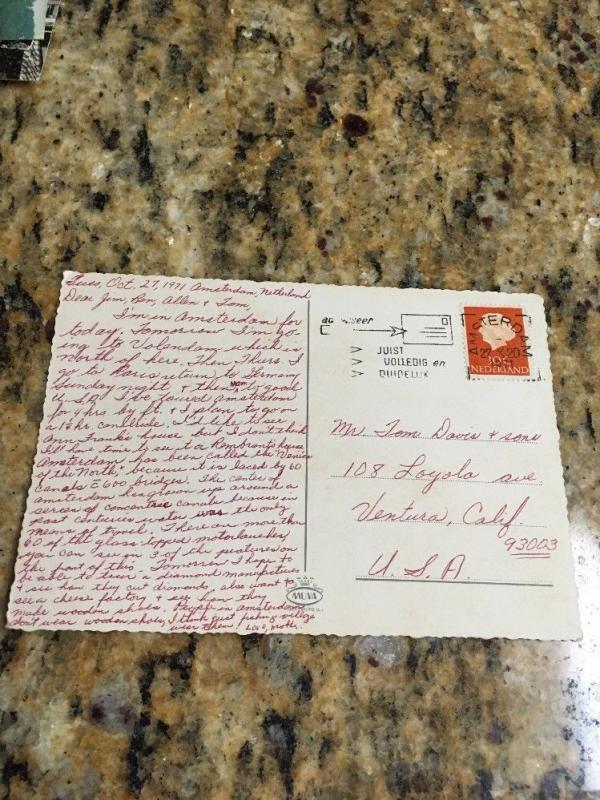 Tues, Oct. 27, 1971 Amsterdam, Netherland
Dear Jim, Ken, Allen & Tom,
I'm in Amsterdam for
today. Tomorrow I'm go-
ing to Volendam which is
north of here. Then Thurs. I
go to Paris return to Germany
Sunday night & then Mon. to good
U.S.A. I've toured Amsterdam
for 4 hrs by ft. & I plan to go on
a 1½ hr. canal ride. I'd like to see
Ann Frank's house but I don't think
I'll have time to see it or Rembrant's house
Amsterdam has been called the "Venice
of the North" because it is laced by 60
canals & 600 bridges. The center of
amsterdam has grown up around a
series of concentric canals because in
past centuries water was the only
means of travel. There are more than
60 of the glass topped motorlaunches
you can see in 3 of the pictures on
the front of this. Tomorrow I hope to
be able to tour a diamond manufacture
& see how they cut diamonds, also want to
see a cheese factory & see how they
make wooden shoes. People in amsterdam
don't wear wooden shoes, I think just fishing village
wear them! Love, Mother.
adresseer
JUIST
VOLLEDIG en
DUIDELIJK
AMSTERDAM
30c
NEDERLAND
Mr. Tom Davis & sons
108 Loyola ave.
Ventura, Calif.
93003
U.S.A.
MUVA